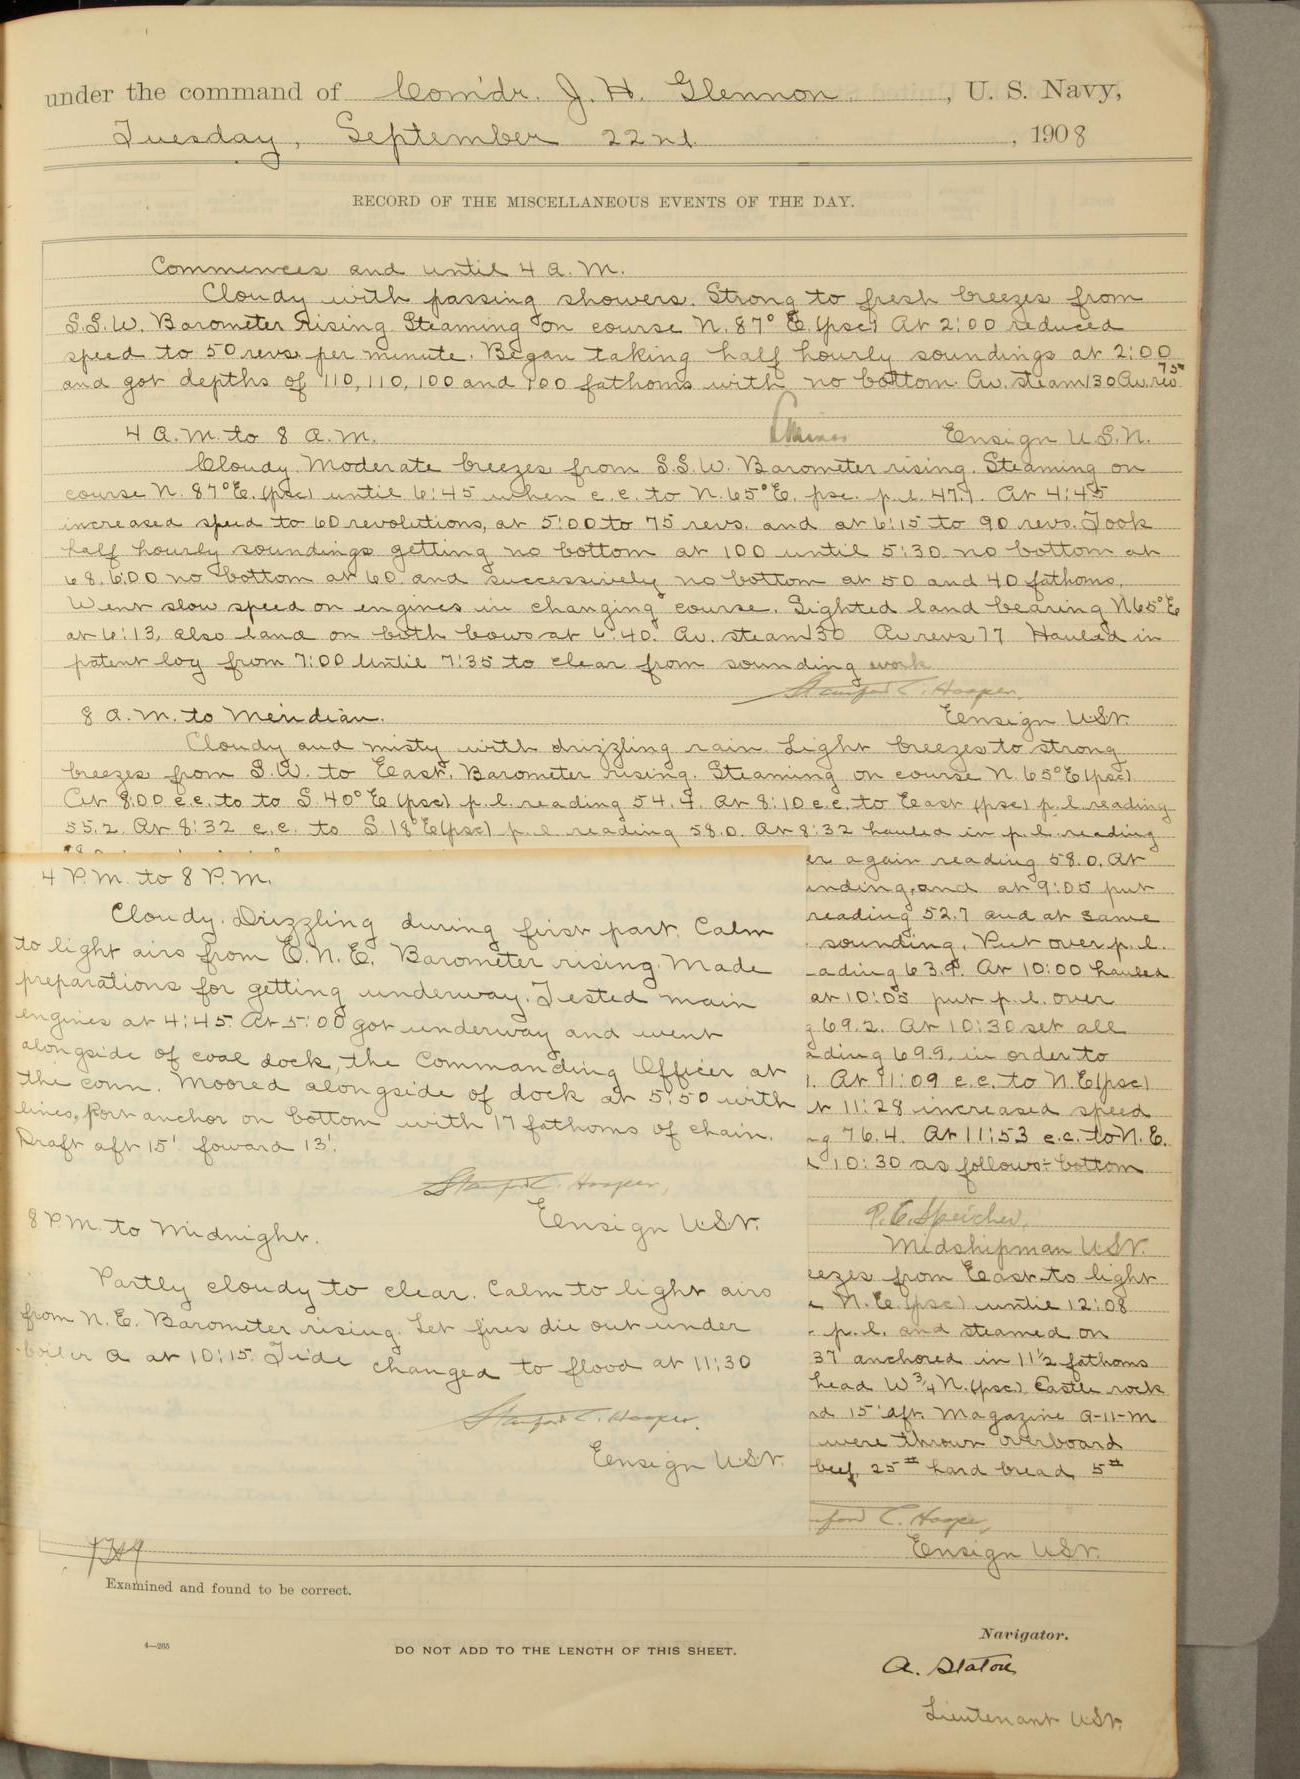 under the command of Com'dr. J. H. Glennon, U. S. Navy,
Tuesday, September 22nd., 1908
RECORD OF THE MISCELLANEOUS EVENTS OF THE DAY.
Commences and until 4 A.M.
Cloudy with passing showers. Strong to fresh breezes from
S.S.W. Barometer rising. Steaming on course N. 87° E. (psc) At 2:00 reduced
speed to 50 revs. per minute. Began taking half hourly soundings at 2:00
and got depths of 110, 110, 100 and 100 fathoms with no bottom. Av. steam 130 Av. rev. 75
Ensign U.S.N.
4 A.M. to 8 A.M.
Cloudy. Moderate breezes from S.S.W. Barometer rising. Steaming on
course N. 87° E. (psc) until 6:45 when c.c. to N. 65° E. psc. p.l. 47.7. At 4:45
increased speed to 60 revolutions, at 5:00 to 75 revs. and at 6:15 to 90 revs. Took
half hourly soundings getting no bottom at 100 until 5:30 no bottom at
68, 6:00 no bottom at 60. and successively no bottom at 50 and 40 fathoms.
Went slow speed on engines in changing course. Sighted land bearing N 65° E
at 6:13, also land on both bows at 6:40. Av. steam 130 Av revs 77 Hauled in
patent log from 7:00 Until 7:35 to clear from sounding work
Stanford C. Hooper,
Ensign USN.
8 A.M. to Meridian.
Cloudy and misty with drizzling rain. Light breezes to strong
breezes from S.W. to East. Barometer rising. Steaming on course N. 65° E (psc)
At 8:00 c.c. to to S. 40° E (psc) p.l. reading 54.4. At 8:10 c.c. to East (psc) p.l. reading
55.2. At 8:32 c.c. to S. 18° E (psc) p.l. reading 58.0. At 8:32 hauled in p.l. reading
again reading 58.0. At
and at 9:05 put
reading 52.7 and at same
sounding. Put over p.l.
63.9. At 10:00 hauled
at 10:05 put p.l. over
69.2. At 10:30 set all
69.9. in order to
At 11:09 c.c. to N.E (psc)
11:28 increased speed
76.4. At 11:53 c.c. to N.E.
10:30 as follows:- bottom
P. E. Speicher,
Midshipman USN.
from East to light
N.E. (psc) until 12:08
p.l. and steamed on
37 anchored in 11 1/2 fathoms
head W 3/4 N. (psc) Castle rock
15' aft. Magazine A-11-M
were thrown overboard
beef, 25# hard bread, 5#
C. Hooper,
Ensign USN.
4 P.M. to 8 P.M.
Cloudy. Drizzling during first part. Calm
to light airs from E.N.E. Barometer rising. Made
preparations for getting underway. Tested main
engines at 4:45. At 5:00 got underway and went
alongside of coal dock, the Commanding Officer at
the conn. Moored alongside of dock at 5:50 with
lines, port anchor on bottom with 17 fathoms of chain.
Draft aft 15' foward 13'.
Stanford C. Hooper,
Ensign USN.
8 P.M. to Midnight.
Partly cloudy to clear. Calm to light airs
from N.E. Barometer rising. Let fires die out under
boiler A at 10:15. Tide changed to flood at 11:30
Stanford C. Hooper,
Ensign USN.
Examined and found to be correct.
4—265
DO NOT ADD TO THE LENGTH OF THIS SHEET.
Navigator.
A. Staton
Lieutenant USN.